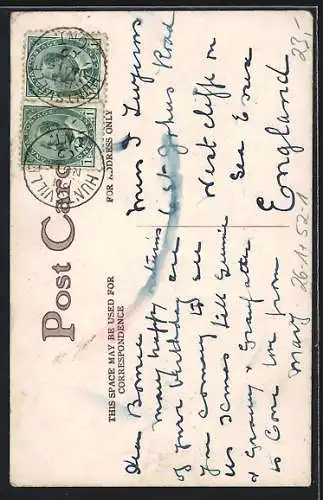 Post Card
THIS SPACE MAY BE USED FOR
CORRESPONDENCE
FOR ADDRESS ONLY
HUN VILLE
Dear Bonnie
many happy returns
of your birthday are
you coming to see
us Xmas tell Gennie
& Granny & Grandfather
to Come love from
Mary
Miss I
St Johns Road
Westcliff on
Sea Essex
England
26.1+52-1
23,-